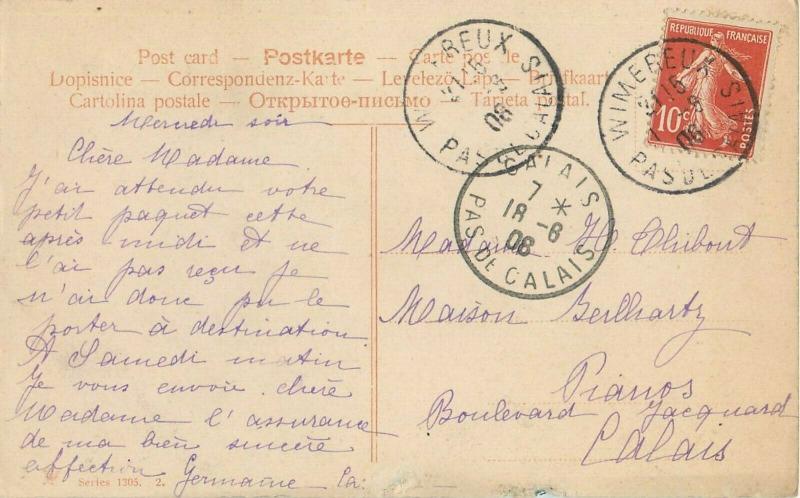 Post card — Postkarte — Carte postale
Dopisnice — Correspondenz-Karte — Levelező-Lap — Briefkaart
Cartolina postale — Открытое-письмо — Tarjeta postal.
Mercredi soir
Chère Madame
J'ai attendu votre
petit paquet cette
après midi et ne
l'ai pas reçu je
n'ai donc pu le
porter à destination.
A Samedi matin
Je vous envoie chère
Madame l'assurance
de ma bien sincère
affection Germaine
Series 1305. 2.
REUX
PAS
08
CALAIS
7 *
18 -6
08
PAS DE CALAIS
WIMEREUX
16
08
PAS DE
REPUBLIQUE FRANÇAISE
10c
POSTES
Madame H.
Maison
Pianos
Boulevard Jacquard
Calais